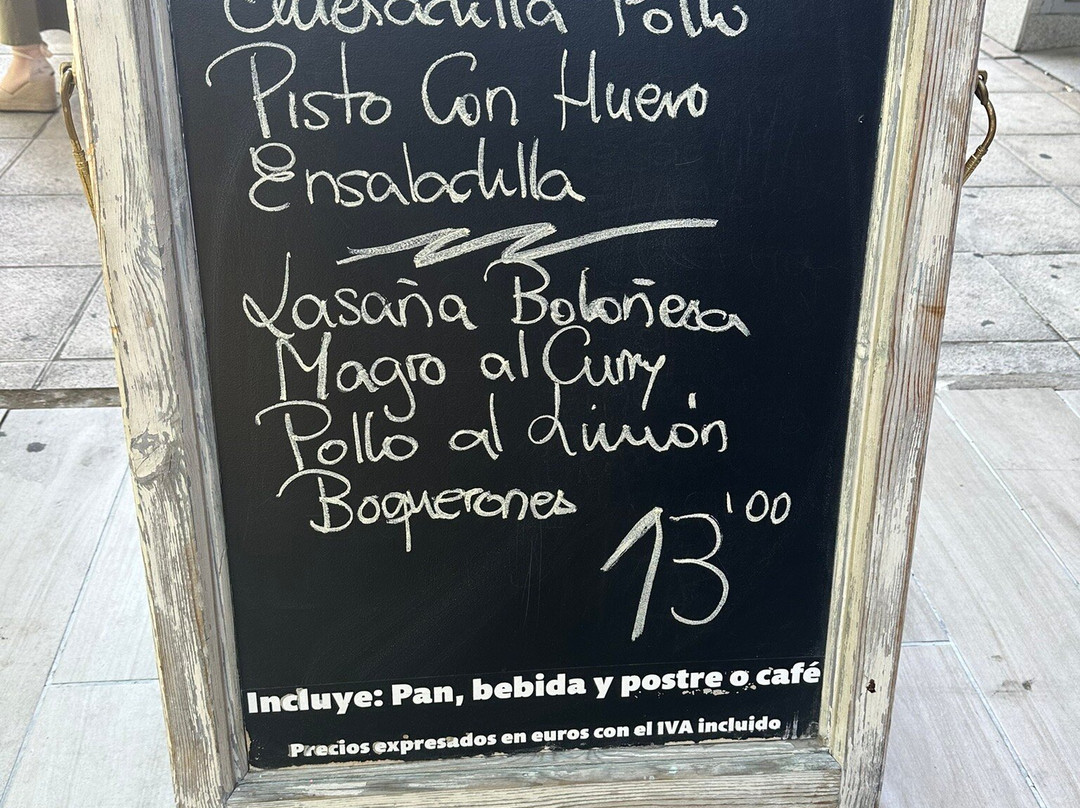 Quesadilla Pollo
Pisto Con Huevo
Ensaladilla
Lasaña Boloñesa
Magro al Curry
Pollo al Limón
Boquerones
13'00
Incluye: Pan, bebida y postre o café
Precios expresados en euros con el IVA incluido